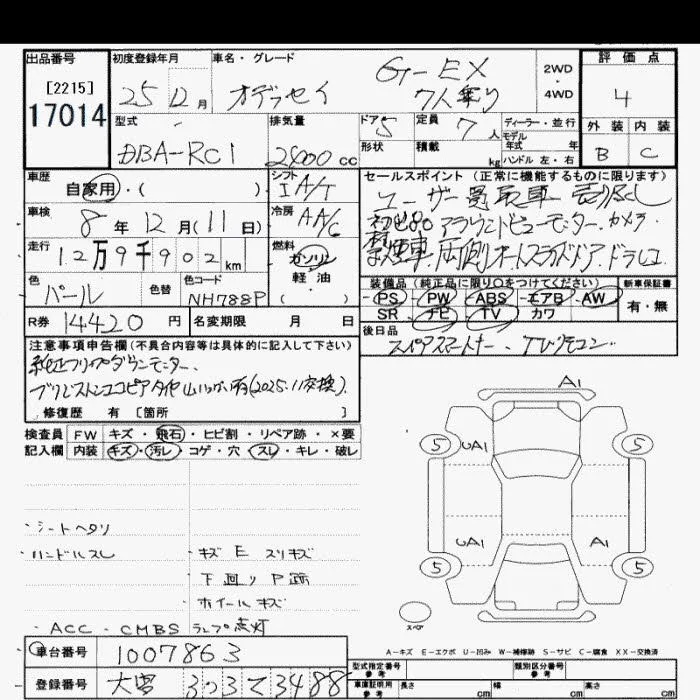 出品番号
[2215]
17014
初度登録年月
25 12月
車名・グレード
オデッセイ
G-EX
7人乗り
2WD
4WD
評価点
4
外装 内装
B C
型式
DBA-RC1
排気量
2400cc
ドア 5
形状
定員 7人
積載 kg
ディーラー・並行
モデル年式 年式
ハンドル 左・右
車歴
自家用・( )
シフト
IA/T
車検
8年12月(11日)
冷房
AAC
走行
12万9千902km
燃料
ガソリン
軽油
( )
色
パール
色替
色コード
NH788P
R券 14420円
名変期限 月 日
セールスポイント(正常に機能するものに限ります)
ユーザー買取車
アラウンドビューモニター.カメラ.
両側オートスライドドア.ドラレコ
装備品(純正品に限り○をつけてください)
PS・PW・ABS・エアB・AW
SR・ナビ・TV・カワ
新車保証書
有・無
後日品
スペアスマートキー、TVリモコン
注意事項申告欄(不具合内容等は具体的に記入して下さい)
純正フリップダウンモニター、
ブリヂストンエコピアタイヤ (2025.11交換).
修復歴 有 [箇所 ]
検査員 FW キズ・飛石・ヒビ割・リペア跡・×要
記入欄 内装 キズ・汚レ・コゲ・穴・スレ・キレ・破レ
・シートヘタリ
・ハンドルスレ
・キズ E スリキズ
下廻り P跡
ホイールキズ
・ACC・CMBS ランプ点灯
A1
5 UA1 5
UA1 A1
5 5
スペア
A-キズ E-エクボ U-凹み W-補修跡 S-サビ C-腐食 XX-交換済
車台番号 1007863
登録番号 3488
型式指定番号 参考
類別区分番号 参考
車庫証明用 参考 長さ cm 幅 cm 高さ cm